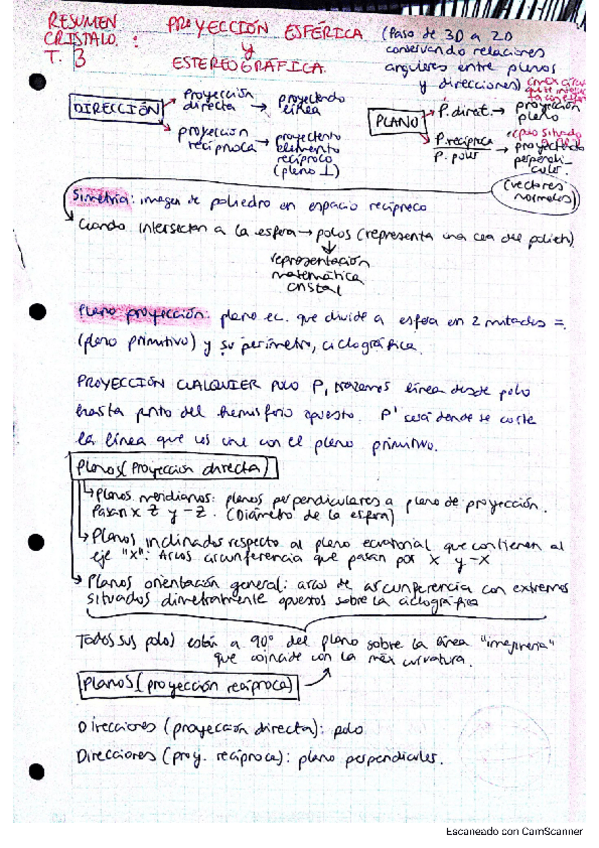 RESUMEN
CRISTALO. :
T. 3
PROYECCIÓN ESFÉRICA
y
ESTEREOGRÁFICA.
(Paso de 3D a 2D
conservando relaciones
angulares entre planos
y direcciones)
DIRECCIÓN
proyección
directa → proyectando
línea
proyección
recíproca → proyectando
elemento
recíproco
(plano ⊥)
PLANO
P. direct. → proyección
plano
P. recíproca
P. polar → proyectando
perpendi-
cular.
(vectores
normales)
Simetría: imagen de poliedro en espacio recíproco
Cuando intersectan a la esfera → polos (representa una cara del poliedro)
representación
matemática
cristal
Plano proyección: plano ec. que divide a esfera en 2 mitades =.
(plano primitivo) y su perímetro, ciclográfica.
PROYECCIÓN CUALQUIER POLO P, trazamos línea desde polo
hasta punto del hemisferio opuesto. P' será donde se corte
la línea que los une con el plano primitivo.
Planos (Proyección directa)
Planos meridianos: planos perpendiculares a plano de proyección.
Pasan x Z y -Z. (Diámetro de la esfera)
Planos inclinados respecto al plano ecuatorial que contienen al
eje "X": Arcos circunferencia que pasan por X y -X
Planos orientación general: arcos de circunferencia con extremos
situados dimetralmente opuestos sobre la ciclográfica
Todos sus polos están a 90° del plano sobre la línea "imaginaria"
que coincide con la máx curvatura.
Planos (proyección recíproca)
Direcciones (proyección directa): polo
Direcciones (proy. recíproca): plano perpendicular.
Escaneado con CamScanner